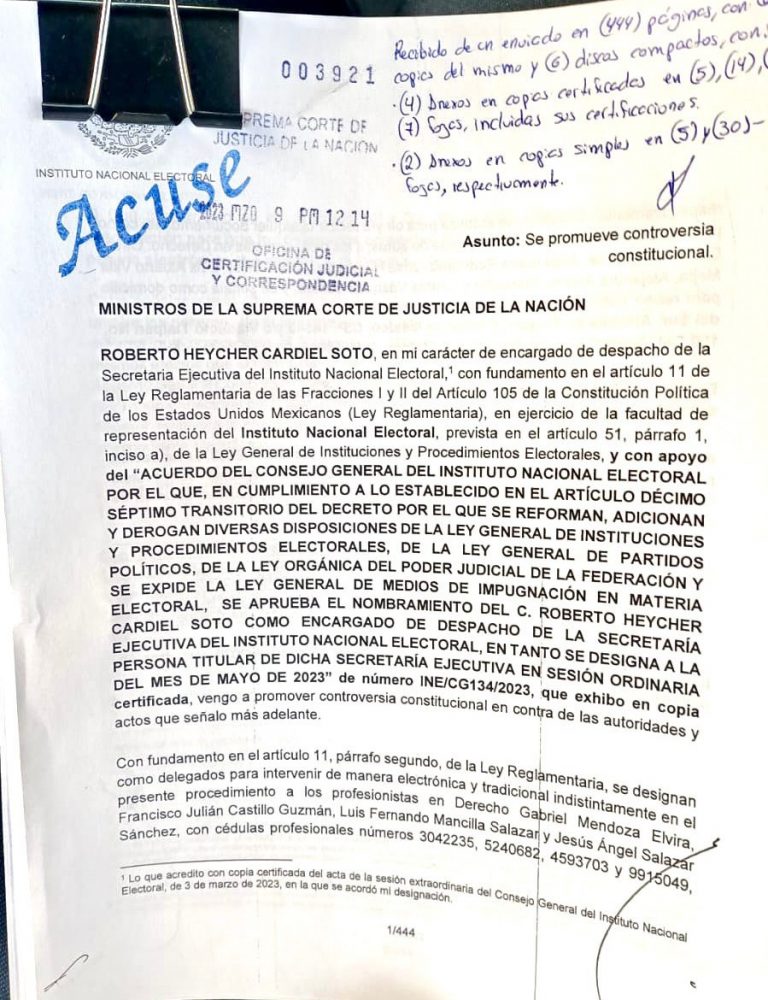 Recibido de un enviado en (444) páginas, con
copias del mismo y (6) discos compactos, con
· (4) Anexos en copias certificadas en (5), (14),
(7) fojas, incluidas sus certificaciones.
· (2) Anexos en copias simples en (5) y (30)-
fojas, respectivamente.
003921
SUPREMA CORTE DE
JUSTICIA DE LA NACIÓN
INSTITUTO NACIONAL ELECTORAL
Acuse
2023 MZO 9 PM 12 14
OFICINA DE
CERTIFICACIÓN JUDICIAL
Y CORRESPONDENCIA
Asunto: Se promueve controversia
constitucional.
MINISTROS DE LA SUPREMA CORTE DE JUSTICIA DE LA NACIÓN
ROBERTO HEYCHER CARDIEL SOTO, en mi carácter de encargado de despacho de la
Secretaria Ejecutiva del Instituto Nacional Electoral,¹ con fundamento en el artículo 11 de
la Ley Reglamentaria de las Fracciones I y II del Artículo 105 de la Constitución Política
de los Estados Unidos Mexicanos (Ley Reglamentaria), en ejercicio de la facultad de
representación del Instituto Nacional Electoral, prevista en el artículo 51, párrafo 1,
inciso a), de la Ley General de Instituciones y Procedimientos Electorales, y con apoyo
del "ACUERDO DEL CONSEJO GENERAL DEL INSTITUTO NACIONAL ELECTORAL
POR EL QUE, EN CUMPLIMIENTO A LO ESTABLECIDO EN EL ARTÍCULO DÉCIMO
SÉPTIMO TRANSITORIO DEL DECRETO POR EL QUE SE REFORMAN, ADICIONAN
Y DEROGAN DIVERSAS DISPOSICIONES DE LA LEY GENERAL DE INSTITUCIONES
Y PROCEDIMIENTOS ELECTORALES, DE LA LEY GENERAL DE PARTIDOS
POLÍTICOS, DE LA LEY ORGÁNICA DEL PODER JUDICIAL DE LA FEDERACIÓN Y
SE EXPIDE LA LEY GENERAL DE MEDIOS DE IMPUGNACIÓN EN MATERIA
ELECTORAL, SE APRUEBA EL NOMBRAMIENTO DEL C. ROBERTO HEYCHER
CARDIEL SOTO COMO ENCARGADO DE DESPACHO DE LA SECRETARÍA
EJECUTIVA DEL INSTITUTO NACIONAL ELECTORAL, EN TANTO SE DESIGNA A LA
PERSONA TITULAR DE DICHA SECRETARÍA EJECUTIVA EN SESIÓN ORDINARIA
DEL MES DE MAYO DE 2023" de número INE/CG134/2023, que exhibo en copia
certificada, vengo a promover controversia constitucional en contra de las autoridades y
actos que señalo más adelante.
Con fundamento en el artículo 11, párrafo segundo, de la Ley Reglamentaria, se designan
como delegados para intervenir de manera electrónica y tradicional indistintamente en el
presente procedimiento a los profesionistas en Derecho Gabriel Mendoza Elvira,
Francisco Julián Castillo Guzmán, Luis Fernando Mancilla Salazar y Jesús Ángel Salazar
Sánchez, con cédulas profesionales números 3042235, 5240682, 4593703 y 9915049,
¹ Lo que acredito con copia certificada del acta de la sesión extraordinaria del Consejo General del Instituto Nacional
Electoral, de 3 de marzo de 2023, en la que se acordó mi designación.
1/444